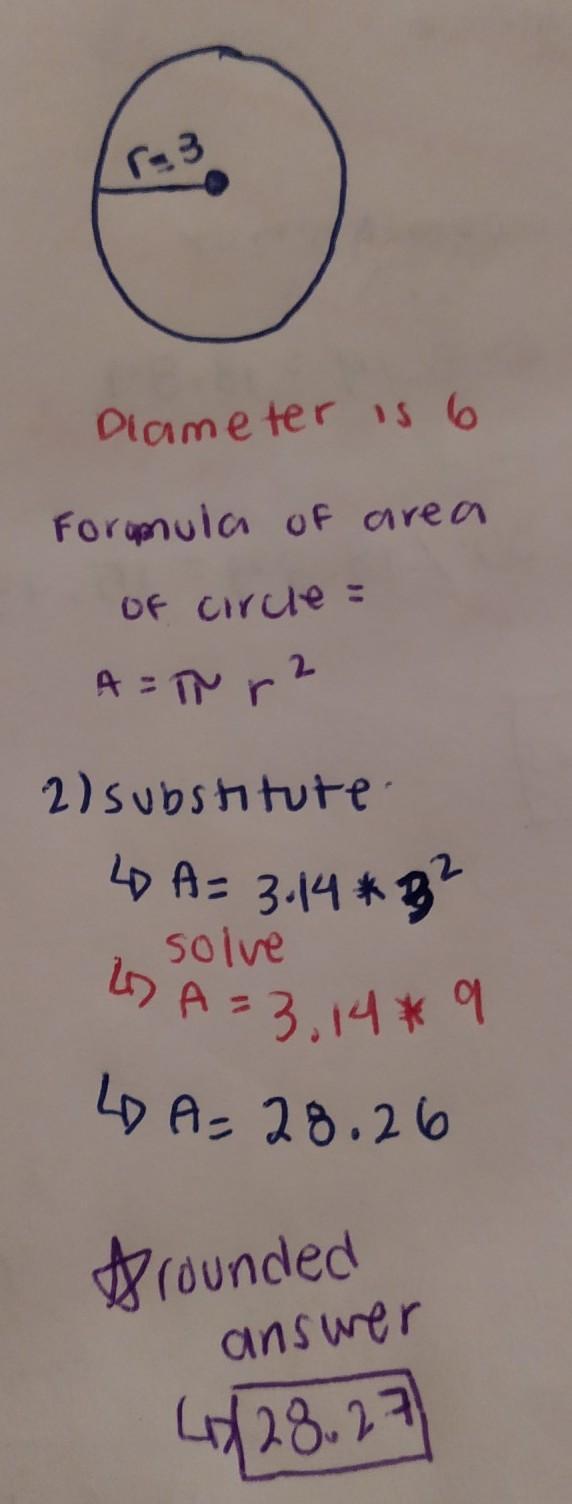 r=3
Diameter is 6
Formula of area
of circle =
A = π r²
2) substitute
↳ A = 3.14 * 3²
solve
↳ A = 3.14 * 9
↳ A = 28.26
☆ rounded
answer
↳ 28.27